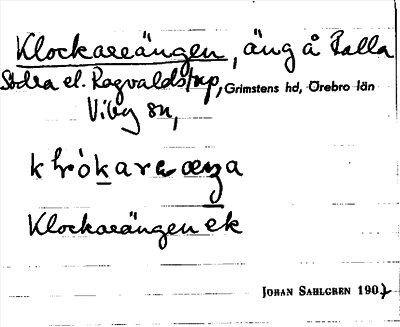 Klockareängen, äng å Balla
Södra el. Ragvaldstorp, Grimstens hd, Örebro län
Viby sn,
Klockareängen ek
JOHAN SAHLGREN 1907